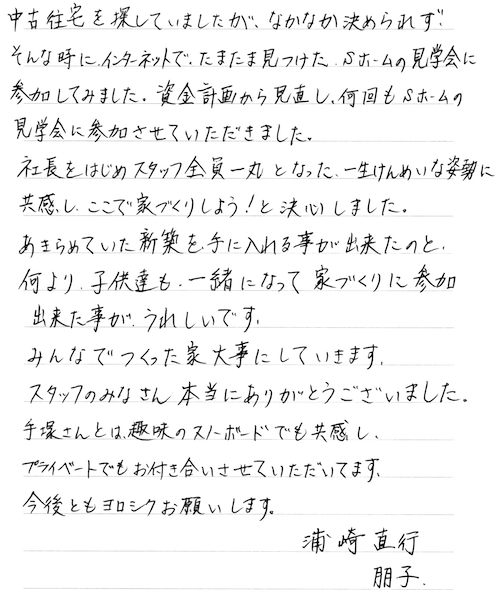 中古住宅を探していましたが、なかなか決められず!
そんな時に、インターネットで、たまたま見つけた、Sホームの見学会に
参加してみました。資金計画から見直し、何回もSホームの
見学会に参加させていただきました。
社長をはじめスタッフ全員一丸となった、一生けんめいな姿勢に
共感し、ここで家づくりしよう!と決心しました。
あきらめていた新築を、手に入れる事が出来たのと、
何より、子供達も、一緒になって家づくりに参加
出来た事が、うれしいです。
みんなでつくった家大事にしていきます。
スタッフのみなさん本当にありがとうございました。
手塚さんとは、趣味のスノーボードでも共感し、
プライベートでもお付き合いさせていただいてます。
今後ともヨロシクお願いします。
浦崎直行
朋子.